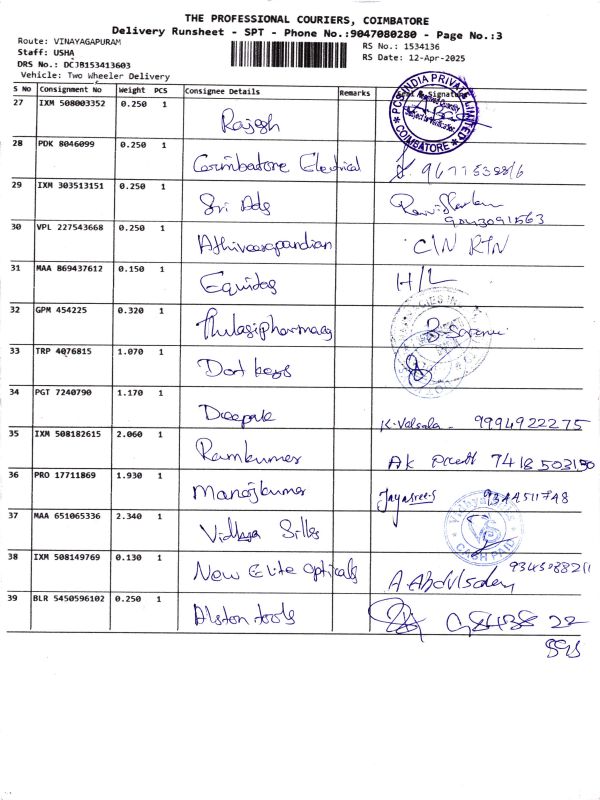 THE PROFESSIONAL COURIERS, COIMBATORE
Delivery Runsheet - SPT - Phone No.:9047080280 - Page No.:3
Route: VINAYAGAPURAM
Staff: USHA
DRS No.: DCJB153413603
Vehicle: Two Wheeler Delivery
RS No.: 1534136
RS Date: 12-Apr-2025
S No Consignment No Weight PCS Consignee Details Remarks Signature
27 IXM 508003352 0.250 1 Rajesh
PCS INDIA PRIVATE LIMITED
COIMBATORE
28 PDK 8046099 0.250 1 Coimbatore Electrical
29 IXM 303513151 0.250 1 Sri Ads
9043091563
30 VPL 227543668 0.250 1 Athiveerapandian C/N RTN
31 MAA 869437612 0.150 1 Equidas H/L
32 GPM 454225 0.320 1 Thulasipharmacy
33 TRP 4076815 1.070 1
34 PGT 7240790 1.170 1 Deepak K. Valsala - 9994922275
35 IXM 508182615 2.060 1 Ramkumar AK 7418503150
36 PRO 17711869 1.930 1 Manojkumar Jayasree.S 9344511748
37 MAA 651065336 2.340 1 Vidhya Silks
CASH PAID
38 IXM 508149769 0.130 1 New Elite Opticals
39 BLR 5450596102 0.250 1 Alston tools